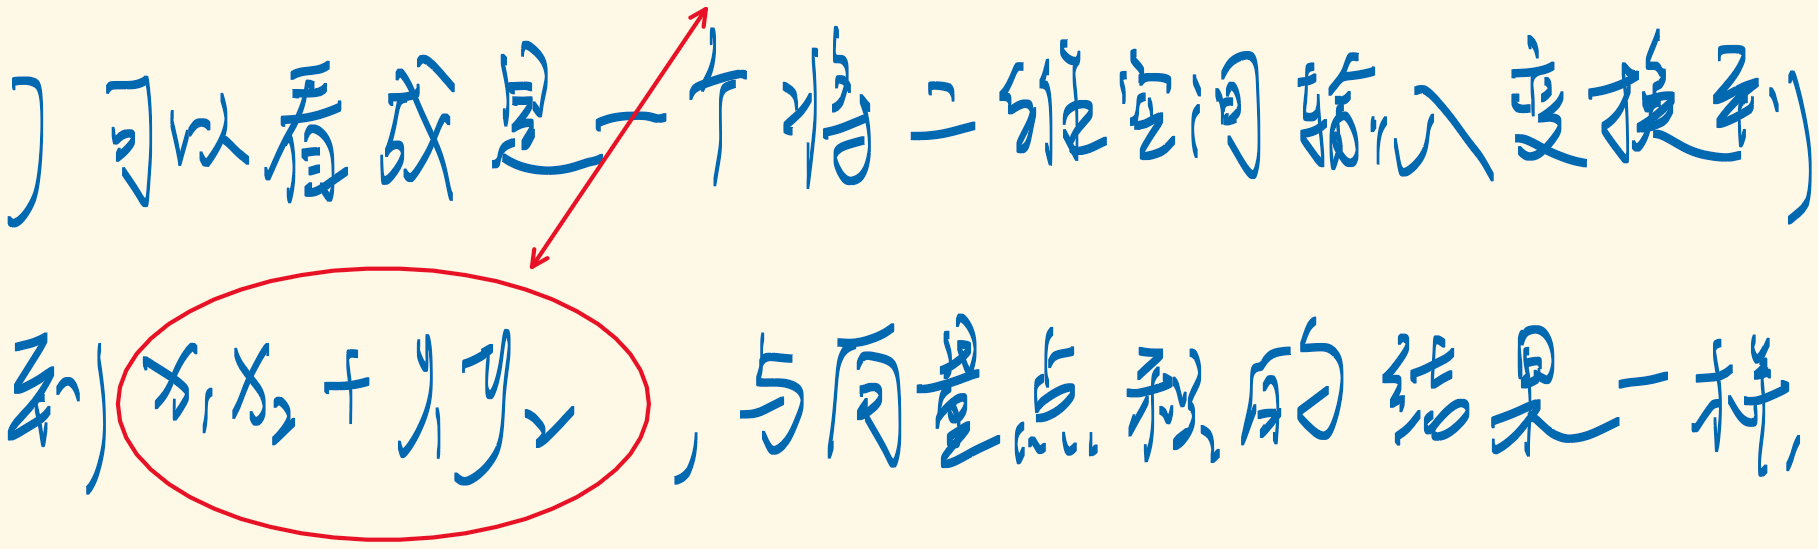 ] 可以看成是一个将二维空间输入变换到
到 x₁x₂ + y₁y₂ , 与向量点积的结果一样,